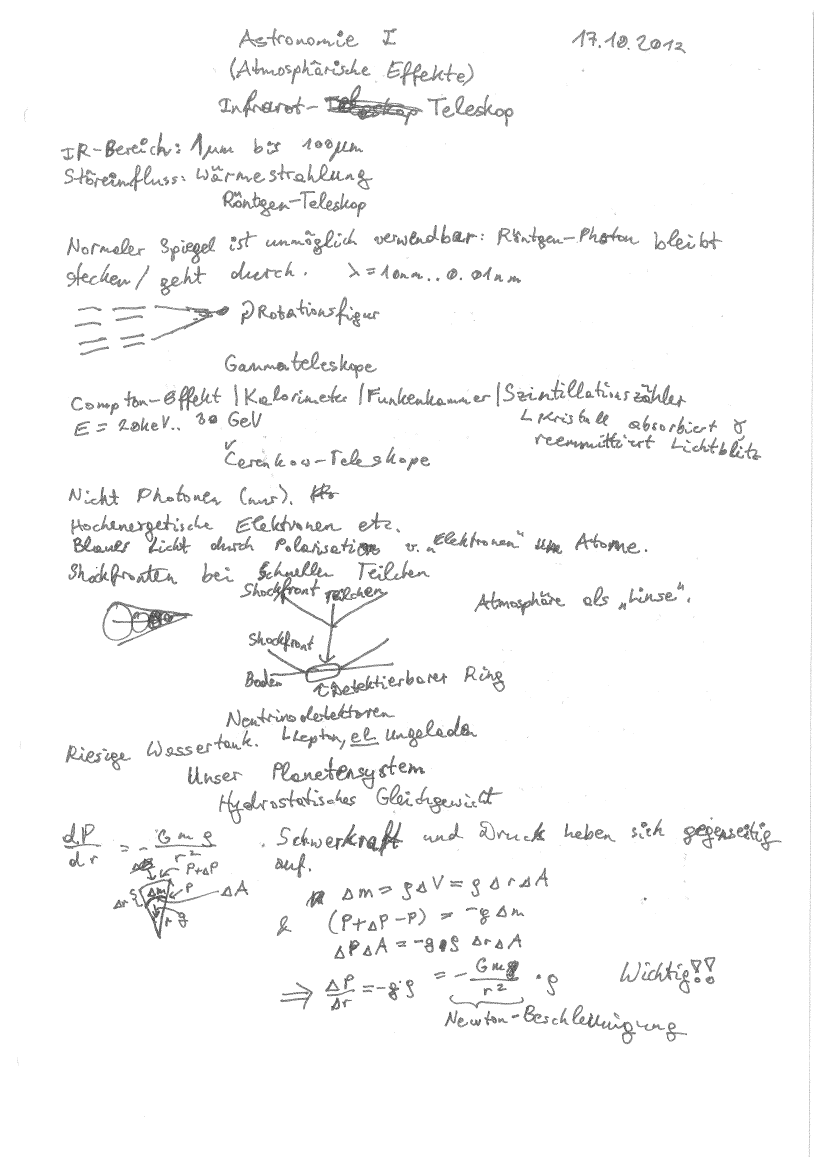 Astronomie I 17.10.2012
(Atmosphärische Effekte)
Infrarot- Teleskop
IR-Bereich: 1µm bis 100µm
Störeinfluss: Wärmestrahlung
Röntgen-Teleskop
Normaler Spiegel ist unmöglich verwendbar: Röntgen-Photon bleibt
stecken/ geht durch. λ=10nm..0.01nm
Rotationsfigur
Gammateleskope
Compton-Effekt | Kalorimeter | Funkenkammer | Szintillationszähler
E = 20keV.. 30 GeV
↳ Kristall absorbiert γ
reemmittiert Lichtblitz
Čerenkow-Teleskope
Nicht Photonen (nur).
Hochenergetische Elektronen etc.
Blaues Licht durch Polarisation v. „Elektronen" um Atome.
Shockfronten bei schnellen Teilchen
Shockfront Teilchen
Atmosphäre als „Linse".
Shockfront
Boden
↑Detektierbarer Ring
Neutrinodetektoren
Riesige Wassertank. ↳Lepton, el. ungeladen
Unser Planetensystem
Hydrostatisches Gleichgewicht
dP/dr = - G m ρ / r² . Schwerkraft und Druck heben sich gegenseitig
auf.
P+ΔP
Δr { Δm P ΔA
r g
Δm = ρ ΔV = ρ Δr ΔA
& (P+ΔP-P) = -g Δm
ΔP ΔA = -g ρ Δr ΔA
⇒ ΔP/Δr = -g·ρ = - G m / r² · ρ Wichtig!!
Newton-Beschleunigung